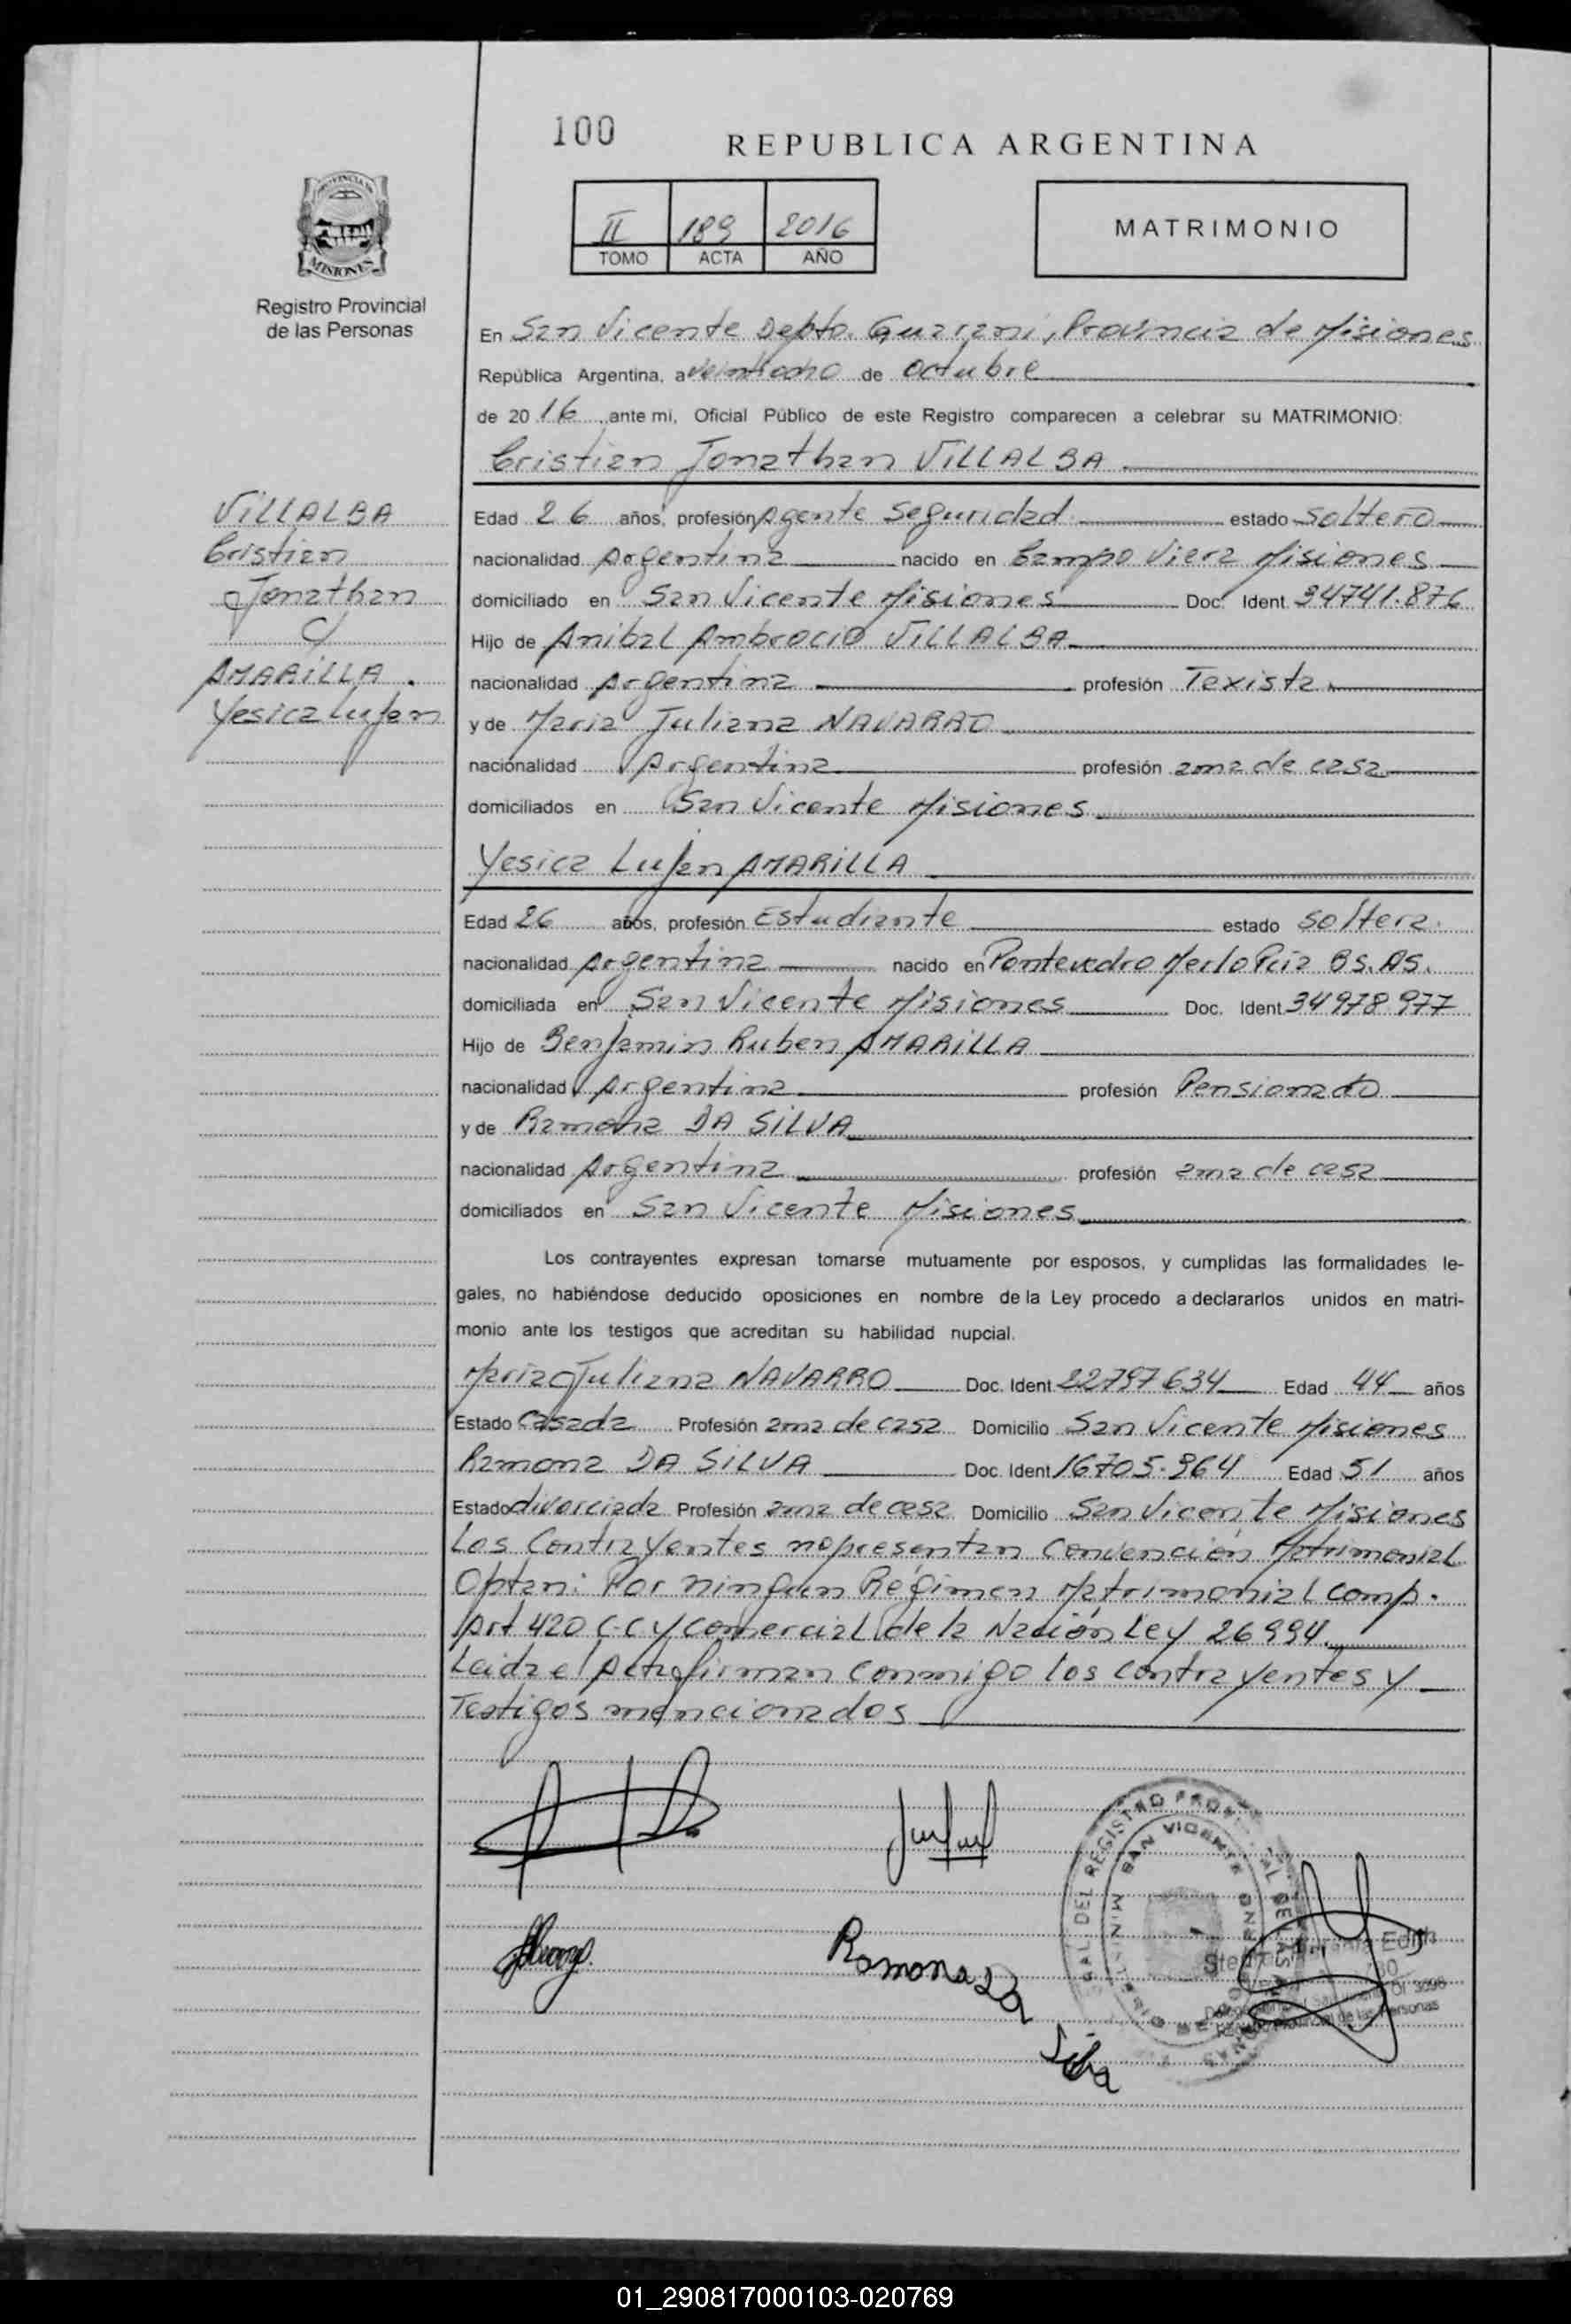 100
REPUBLICA ARGENTINA
II 189 2016
TOMO ACTA AÑO
MATRIMONIO
PROVINCIA DE
MISIONES
Registro Provincial
de las Personas
En San Vicente Depto. Guarani, Provincia de Misiones
República Argentina, a veintiocho de octubre
de 2016 ante mi, Oficial Público de este Registro comparecen a celebrar su MATRIMONIO:
Cristian Jonathan VILLALBA
VILLALBA
Cristian
Jonathan
C/
AMARILLA.
Yesica Lujan
Edad 26 años, profesión Agente Seguridad estado Soltero
nacionalidad Argentina nacido en Campo Viera Misiones
domiciliado en San Vicente Misiones Doc. Ident. 34741.876
Hijo de Anibal Ambrocio VILLALBA
nacionalidad Argentina profesión Texista
y de Maria Juliana NAVARRO
nacionalidad Argentina profesión ama de casa
domiciliados en San Vicente Misiones
Yesica Lujan AMARILLA
Edad 26 años, profesión Estudiante estado Soltera.
nacionalidad Argentina nacido en Pontevedro Merlo Pcia Bs. As.
domiciliada en San Vicente Misiones Doc. Ident. 34978977
Hijo de Benjamin Ruben AMARILLA
nacionalidad Argentina profesión Pensionado
y de Ramona DA SILVA
nacionalidad Argentina profesión ama de casa
domiciliados en San Vicente Misiones
Los contrayentes expresan tomarse mutuamente por esposos, y cumplidas las formalidades le-
gales, no habiéndose deducido oposiciones en nombre de la Ley procedo a declararlos unidos en matri-
monio ante los testigos que acreditan su habilidad nupcial.
Maria Juliana NAVARRO Doc. Ident. 22797634 Edad 44 años
Estado Casada Profesión ama de casa Domicilio San Vicente Misiones
Ramona DA SILVA Doc. Ident. 16705.964 Edad 51 años
Estado divorciada Profesión ama de casa Domicilio San Vicente Misiones
Los Contrayentes no presentan Convención Matrimonial
Optan: Por ningun Régimen Matrimonial comp.
Art 420 C.C y Comercial de la Nación Ley 26994.
Leida el Acta firman conmigo los contrayentes y
Testigos mencionados
Ramona Da
Silva
DEL REGISTRO
SAN VICENTE
Edith
de las Personas
01_290817000103-020769